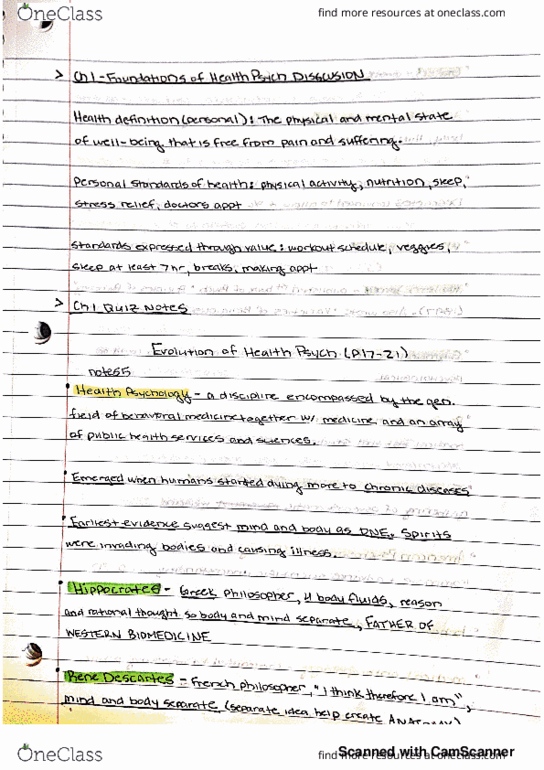 OneClass
find more resources at oneclass.com
> Ch 1 - Foundations of Health Psych DISCUSSION
Health definition (personal): The physical and mental state
of well-being that is free from pain and suffering.
Personal standards of health: physical activity, nutrition, sleep,
stress relief, doctors appt
standards expressed through value: workout schedule, veggies,
sleep at least 7hr, breaks, making appt
> Ch 1 QUIZ NOTES
Evolution of Health Psych (p17-21)
notes
• Health Psychology - a discipline encompassed by the gen.
field of behavioral medicine together w/ medicine and an array
of public health services and sciences.
• Emerged when humans started dying more to chronic diseases
• Earliest evidence suggest mind and body as ONE. Spirits
were invading bodies and causing illness.
• Hippocrates - Greek philosopher, 4 body fluids, reason
and rational thought so body and mind separate, FATHER OF
WESTERN BIOMEDICINE
• Rene Descartes - French philosopher, "I think therefore I am",
mind and body separate (separate idea help create ANATOMY)
OneClass
find more resources at oneclass.com
Scanned with CamScanner